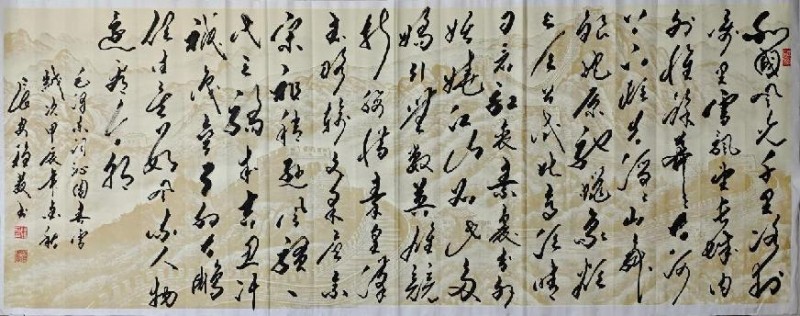 北國风光千里冰封
萬里雪飘望长城内
外惟餘莽〻大河
上下顿失滔〻山舞
银蛇原驰蜡象欲
与天公试比高须晴
日看红装素裹分外
妖娆江山如此多
嬌引無数英雄競
折腰惜秦皇漢
武略输文采唐宗
宋祖稍逊风骚一
代天骄成吉思汗
只識弯弓射大鵰
俱往矣数风流人物
还看今朝
毛泽东词沁园春雪
歲次甲辰年金秋